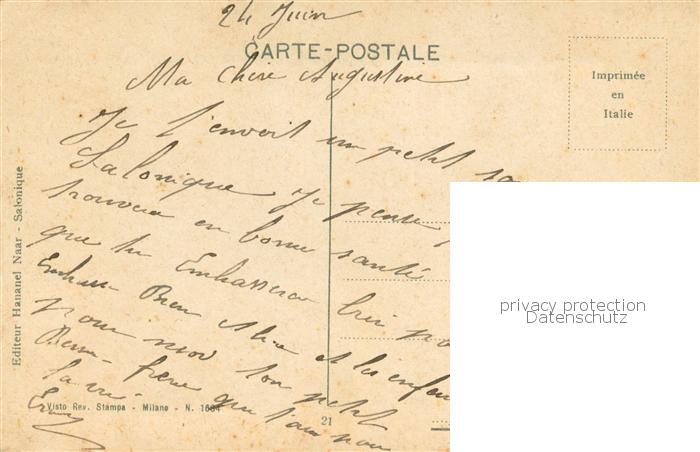 24 Juin
CARTE-POSTALE
Ma chere Augustine
Imprimée
en
Italie
Je t'envoit un petit
Salonique Je pense
trouvera en bonne santé
que tu Embassera
Bien Alice et les enfan
pour moi ton petit
Beau-frère que
la vie
Editeur Hananel Naar - Salonique
Visto Rev. Stampa - Milano - N. 1684
21
privacy protection
Datenschutz